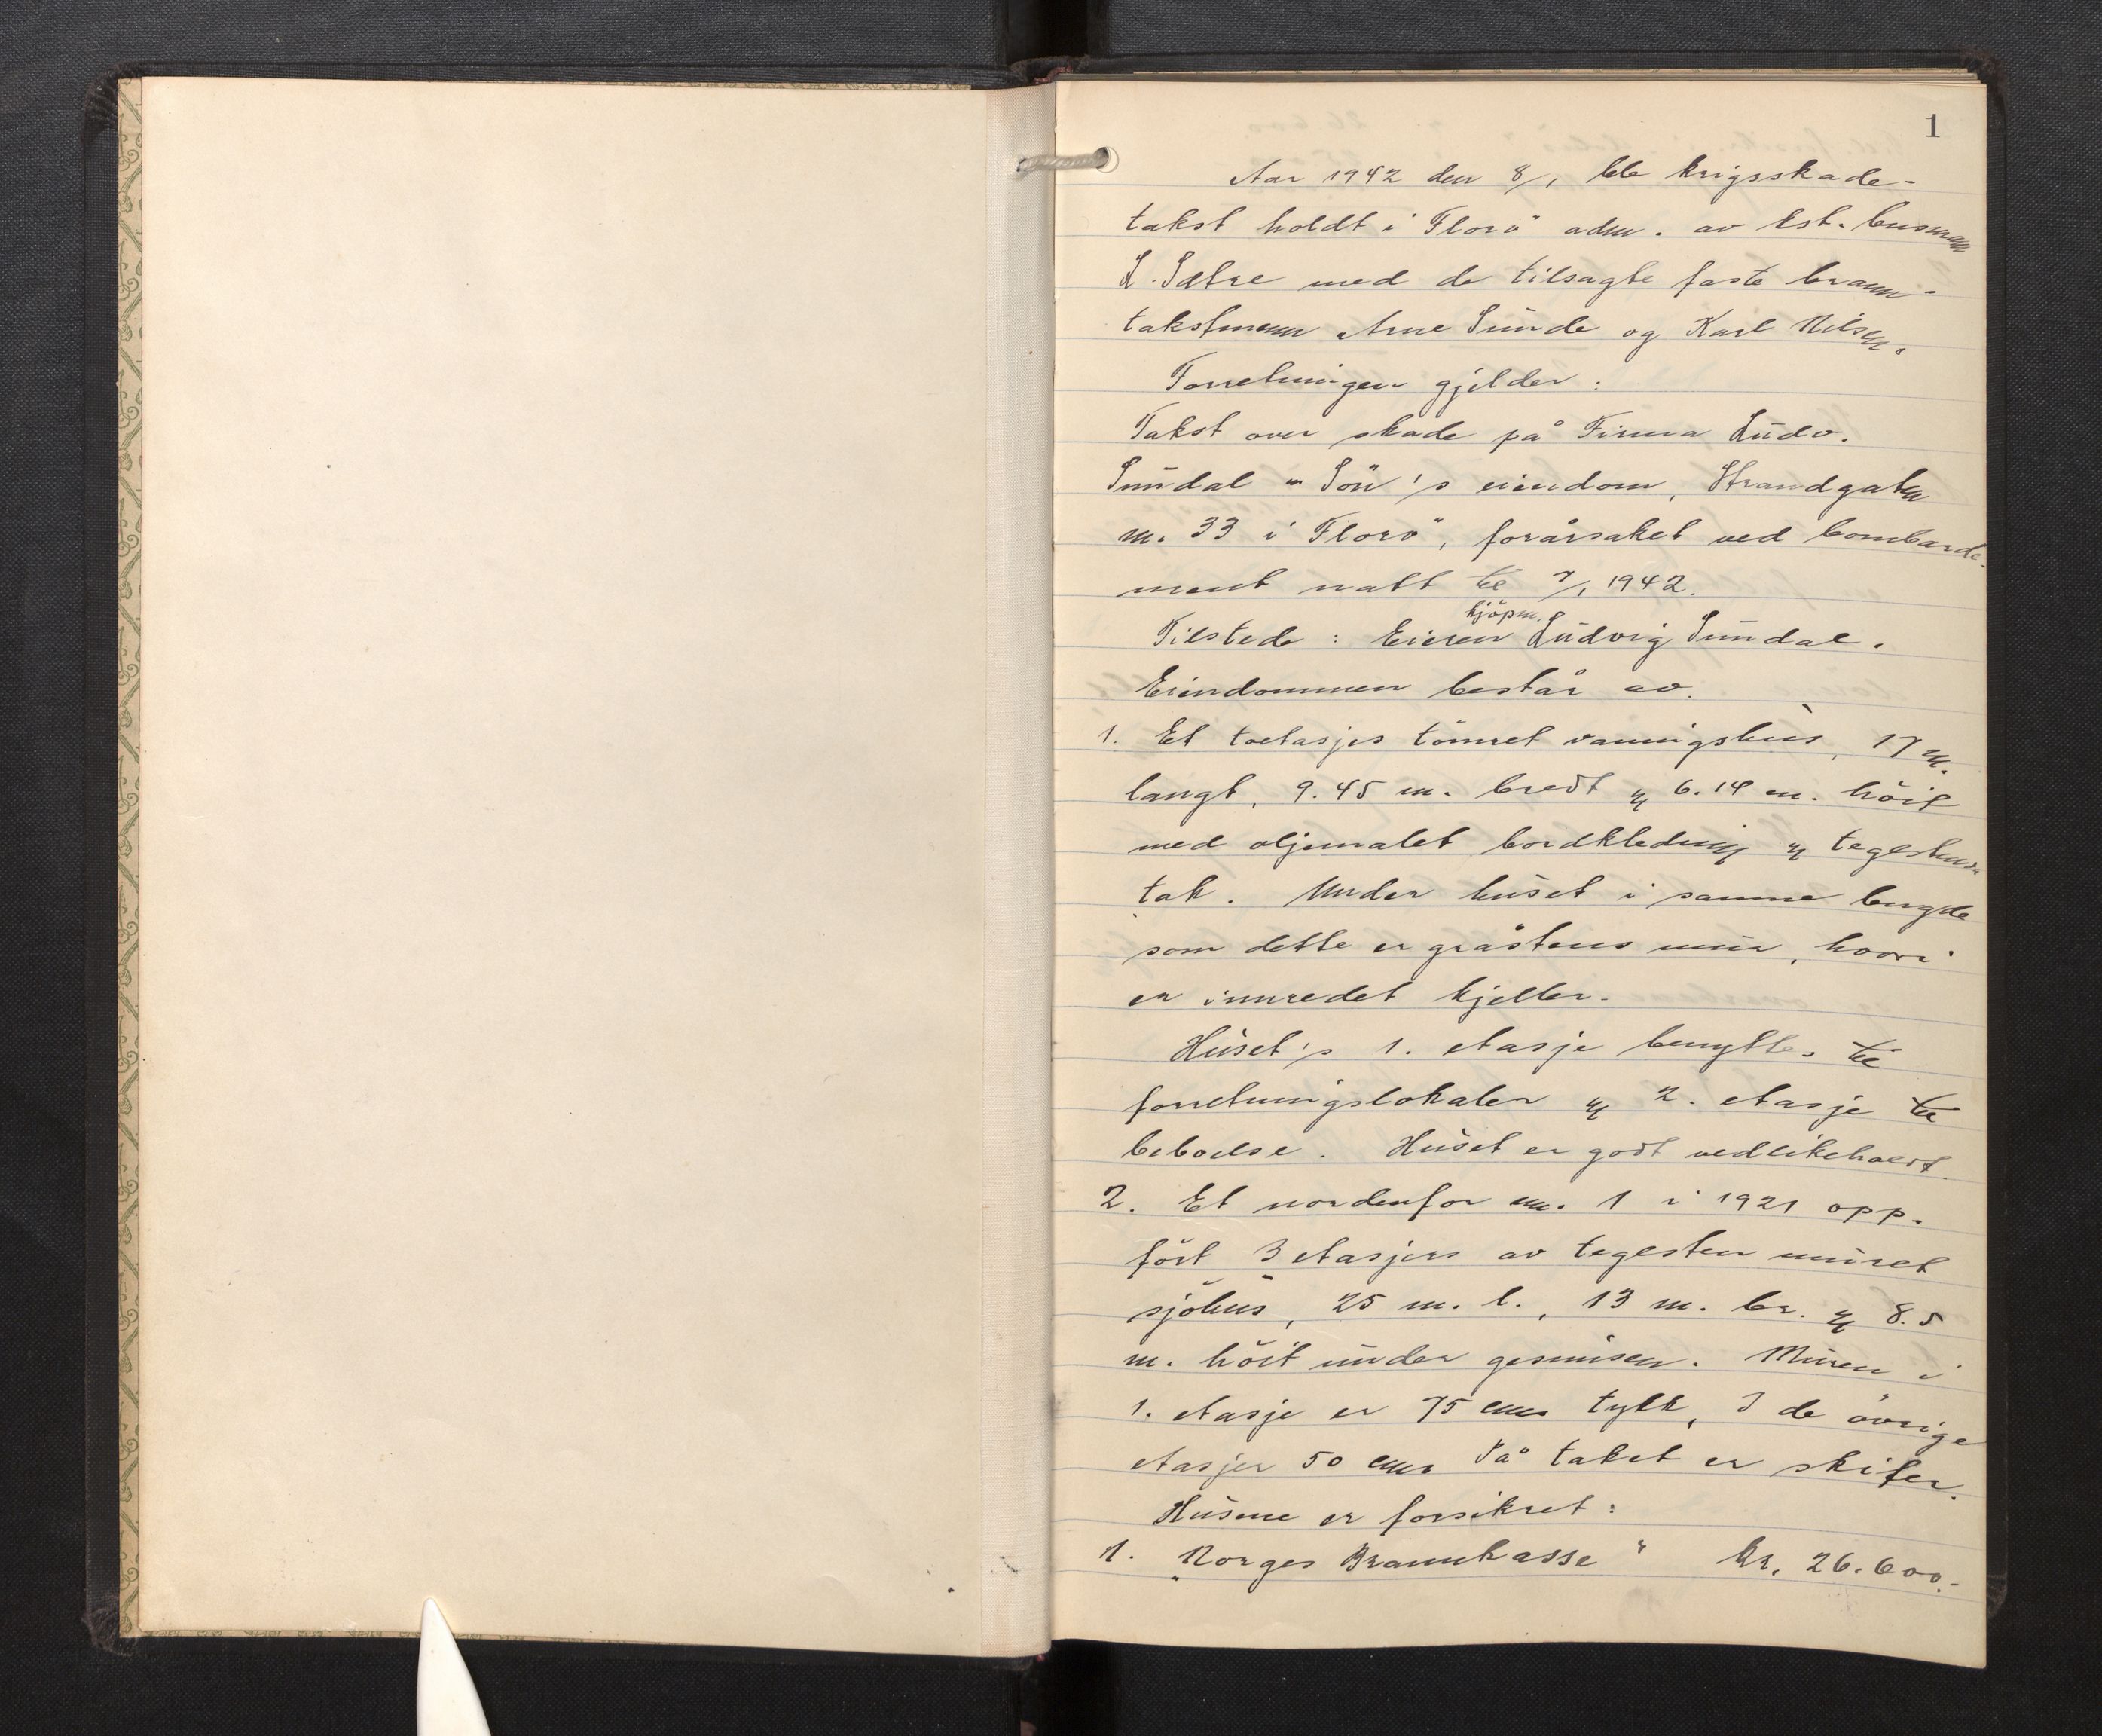 1
Aar 1942 den 8/1 ble krigsskade-
takst holdt i Florö adm. av kst. lensmann
L. Sætre med de tilsagte faste brann-
takstmenn Arne Sunde og Karl Nilsen.
Forretningen gjelder:
Takst over skade på Firma Ludv.
Sundal & Sön's eiendom, Strandgaten
nr. 33 i Florö, forårsaket ved bombarde-
ment natt til 7/1 1942.
kjöpm.
Tilstede: Eieren Ludvig Sundal.
Eiendommen består av.
1. Et toetasjes tömret våningshus, 17 m.
langt, 9.45 m. bredt og 6.14 m. höit
med oljemalet bordkledning og teglstens
tak. Under huset i samme lengde
som dette er gråstens mur, hvori
er innredet kjeller.
Huset's 1. etasje benyttes til
forretningslokaler og 2. etasje til
beboelse. Huset er godt vedlikeholdt.
2. Et nordenfor nr. 1 i 1921 opp-
fört 3 etasjers av teglsten muret
sjöhus, 25 m. l., 13 m. br. og 8.5
m. höit under gesimsen. Muren i
1. etasje er 75 cm tykk, I de övrige
etasjer 50 cm. På taket er skifer.
Husene er forsikret:
1. "Norges Brannkasse" kr. 26.600.-